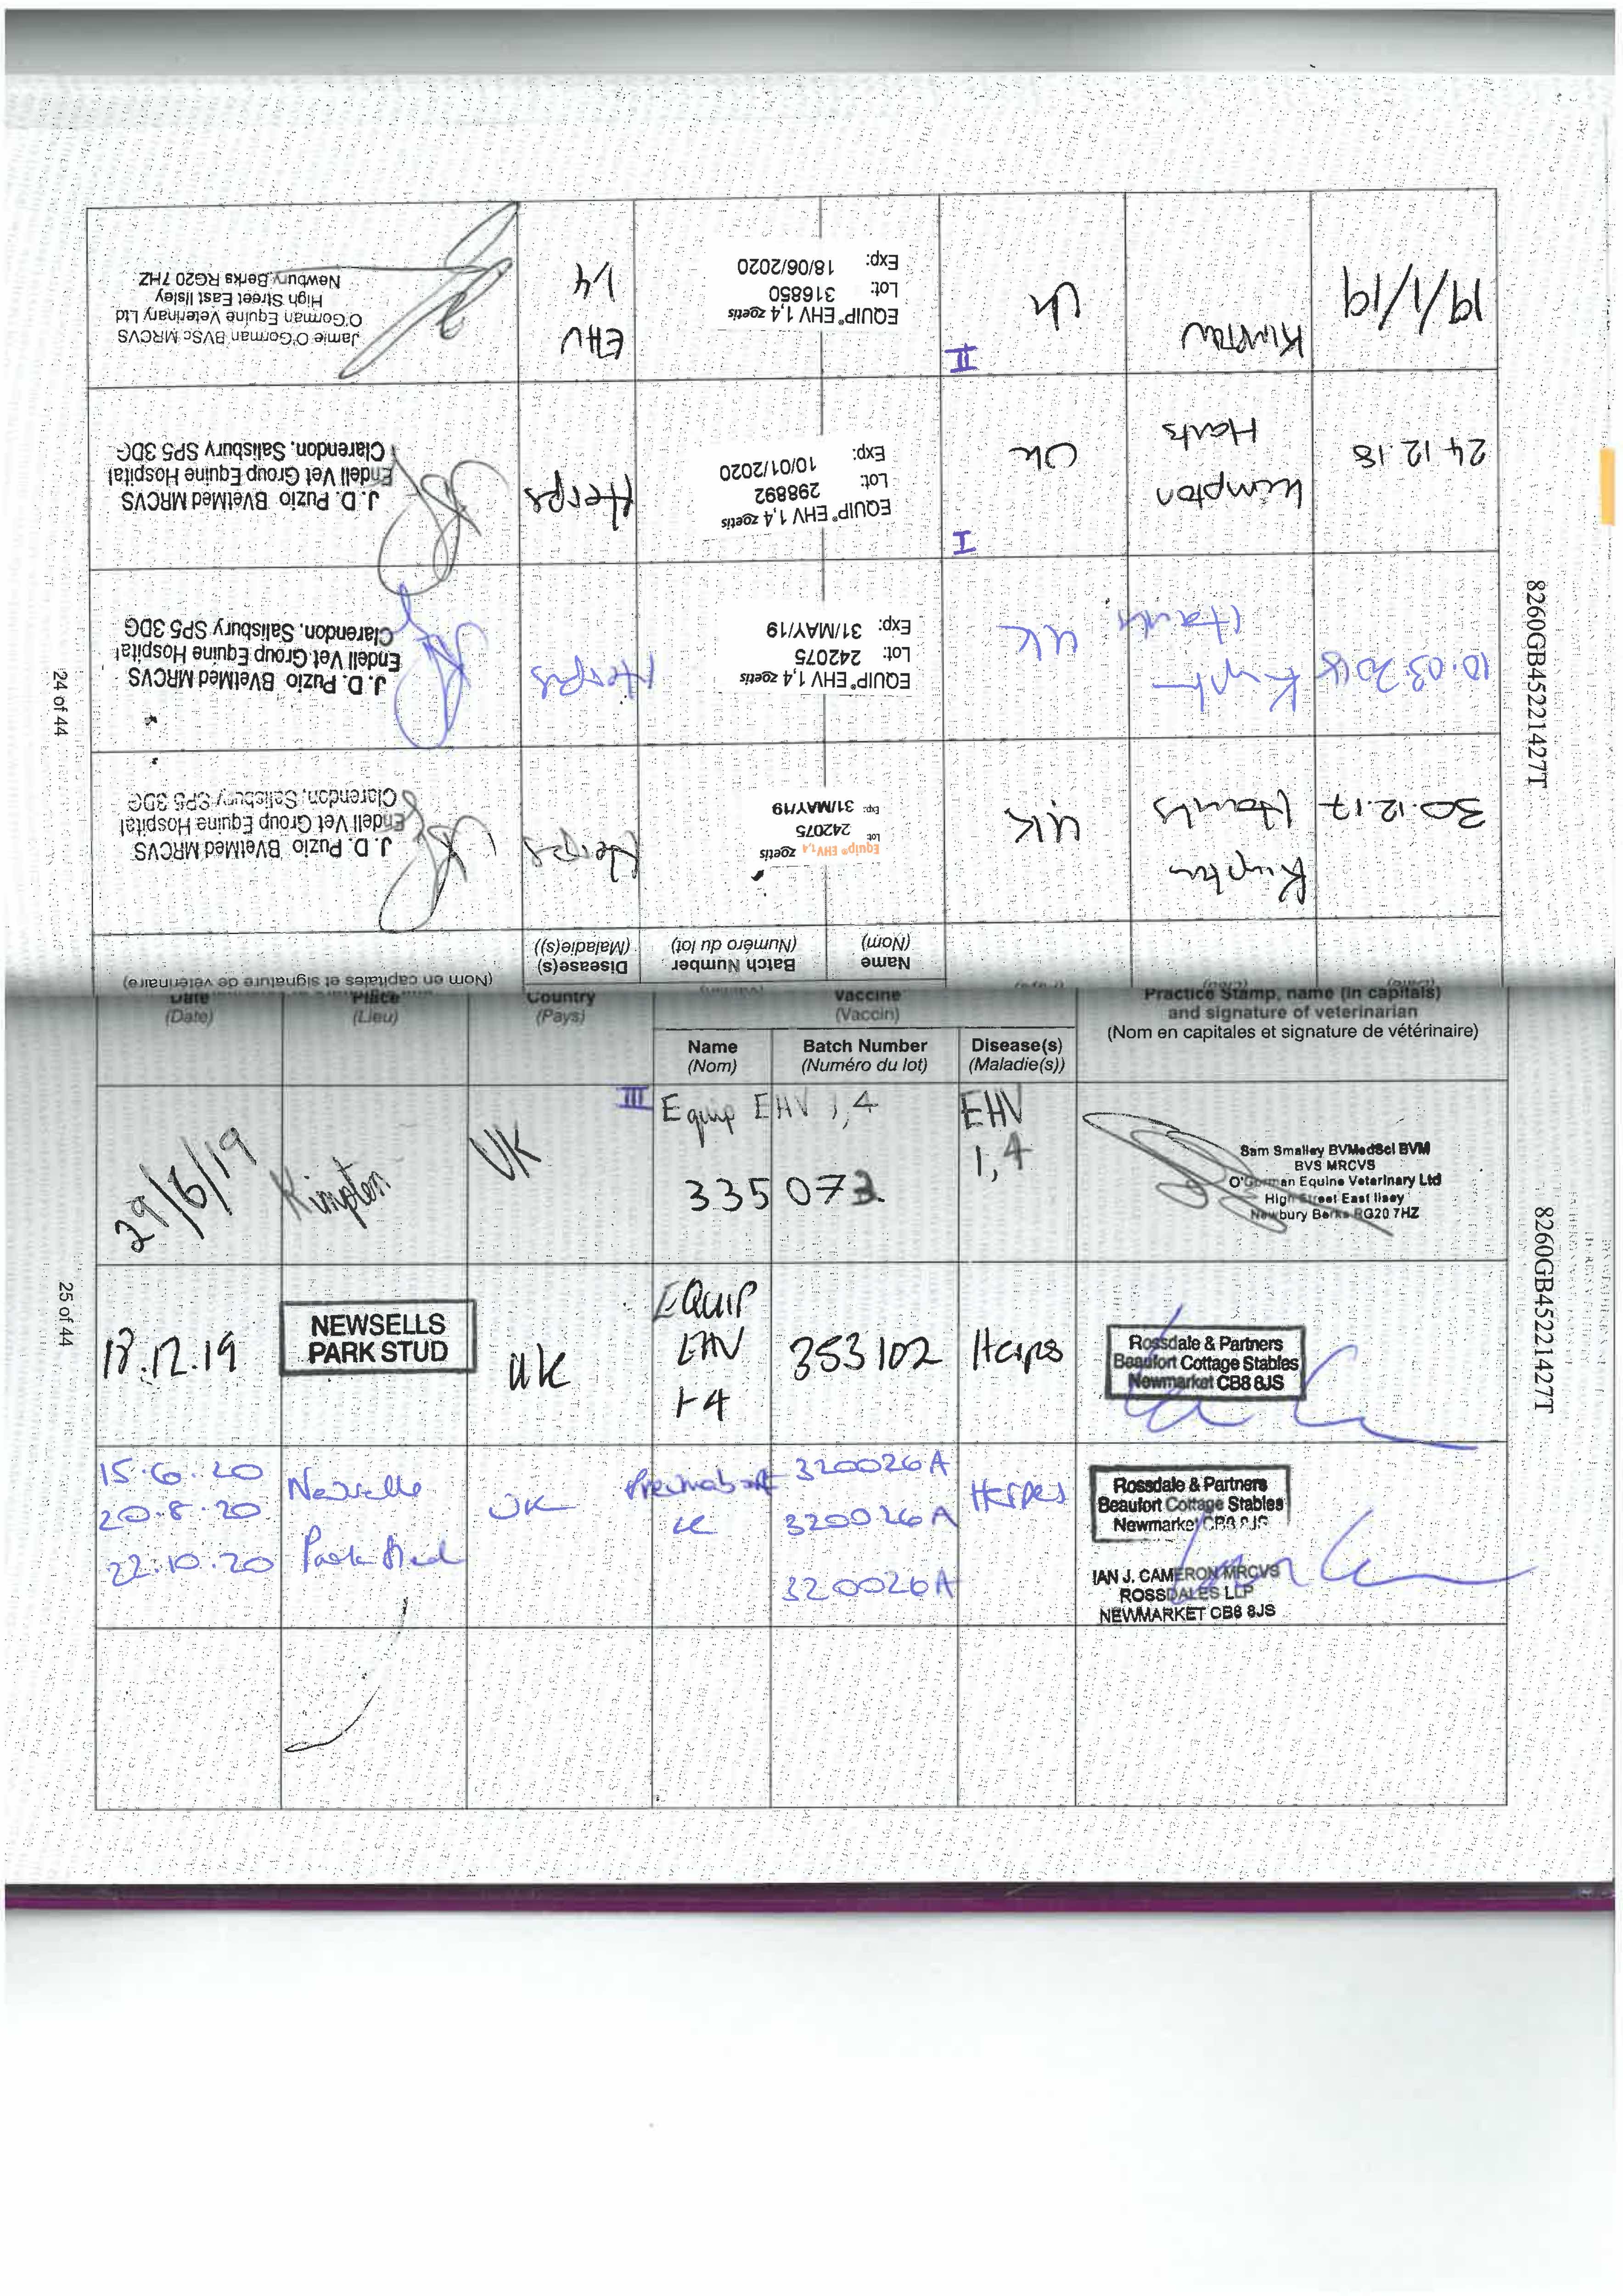 (Nom en capitales et signature de vétérinaire)
Name
(Nom)
Batch Number
(Numéro du lot)
Disease(s)
(Maladie(s))
30.12.17
Kimpton
Hants
UK
Equip® EHV 1,4 zoetis
Lot 242075
Exp: 31/MAY/19
Herps
J. D. Puzio BVetMed MRCVS
Endell Vet Group Equine Hospital
Clarendon, Salisbury SP5 3DG
10.03.2018
Hants
UK
EQUIP® EHV 1,4 zoetis
Lot: 242075
Exp: 31/MAY/19
Herps
J. D. Puzio BVetMed MRCVS
Endell Vet Group Equine Hospital
Clarendon, Salisbury SP5 3DG
24.12.18
Kimpton
Hants
UK
I
EQUIP® EHV 1,4 zoetis
Lot: 298892
Exp: 10/01/2020
Herps
J. D. Puzio BVetMed MRCVS
Endell Vet Group Equine Hospital
Clarendon, Salisbury SP5 3DG
19/1/19
Kimpton
UK
II
EQUIP® EHV 1,4 zoetis
Lot: 316850
Exp: 18/06/2020
EHV
1/4
Jamie O'Gorman BVSc MRCVS
O'Gorman Equine Veterinary Ltd
High Street East Ilsley
Newbury Berks RG20 7HZ
8260GB45221427T
24 of 44
Date
(Date)
Place
(Lieu)
Country
(Pays)
Vaccine
(Vaccin)
Practice Stamp, name (in capitals)
and signature of veterinarian
(Nom en capitales et signature de vétérinaire)
Name
(Nom)
Batch Number
(Numéro du lot)
Disease(s)
(Maladie(s))
29/6/19
Kimpton
UK
III
Equip EHV 1,4
335073
EHV
1,4
Sam Smalley BVMedSci BVM
BVS MRCVS
O'Gorman Equine Veterinary Ltd
High Street East Ilsey
Newbury Berks RG20 7HZ
18.12.19
NEWSELLS
PARK STUD
UK
EQUIP
EHV
1-4
353102
Herps
Rossdale & Partners
Beaufort Cottage Stables
Newmarket CB8 8JS
15.6.20
20.8.20
22.10.20
Park Stud
UK
320026A
320026A
320026A
Herpes
Rossdale & Partners
Beaufort Cottage Stables
Newmarket CB8 8JS
IAN J. CAMERON MRCVS
ROSSDALES LLP
NEWMARKET CB8 8JS
8260GB45221427T
25 of 44